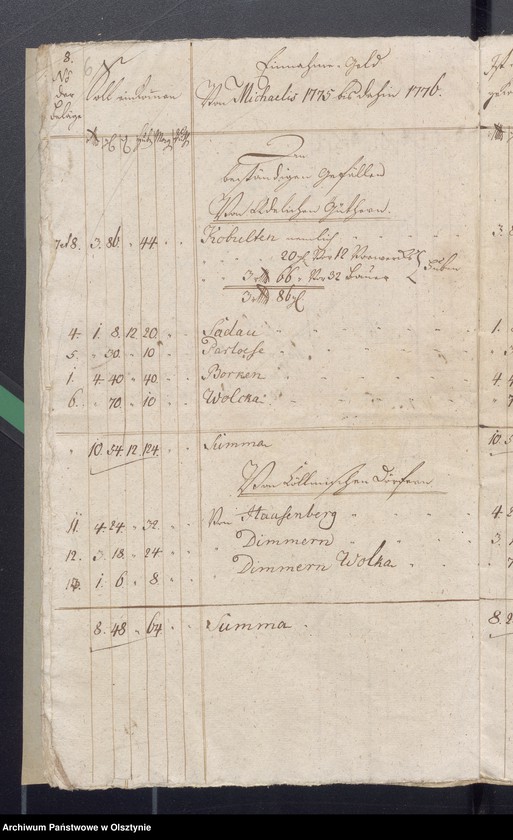 8.
No
der
Beläge
Soll einkommen
Einnahme-Geld
Von Michaelis 1775 bis dahin 1776.
An
beständigen Gefällen
Von Adelichen Güthern.
7 et 8. 3. 86. " 44. Kobulten nemlich
20 gl Vor 12 Vorwercks
3 rth 66 " Vor 32 Bauer Huben
3 rth 86 gl
4. 1. 8. 12. 20. Sadau
5. " 30. " 10. Parloese
1. 4. 40. " 40. Borken
6. " 70. " 10. Wolcka
10. 54. 12. 124. Summa
Von Cöllmischen Dörfern
11. 4. 24. " 32. Von Haasenberg
12. 3. 18. " 24. " Dimmern
1. 6. " 8. " Dimmern Wolka
8. 48. " 64. Summa
Archiwum Państwowe w Olsztynie